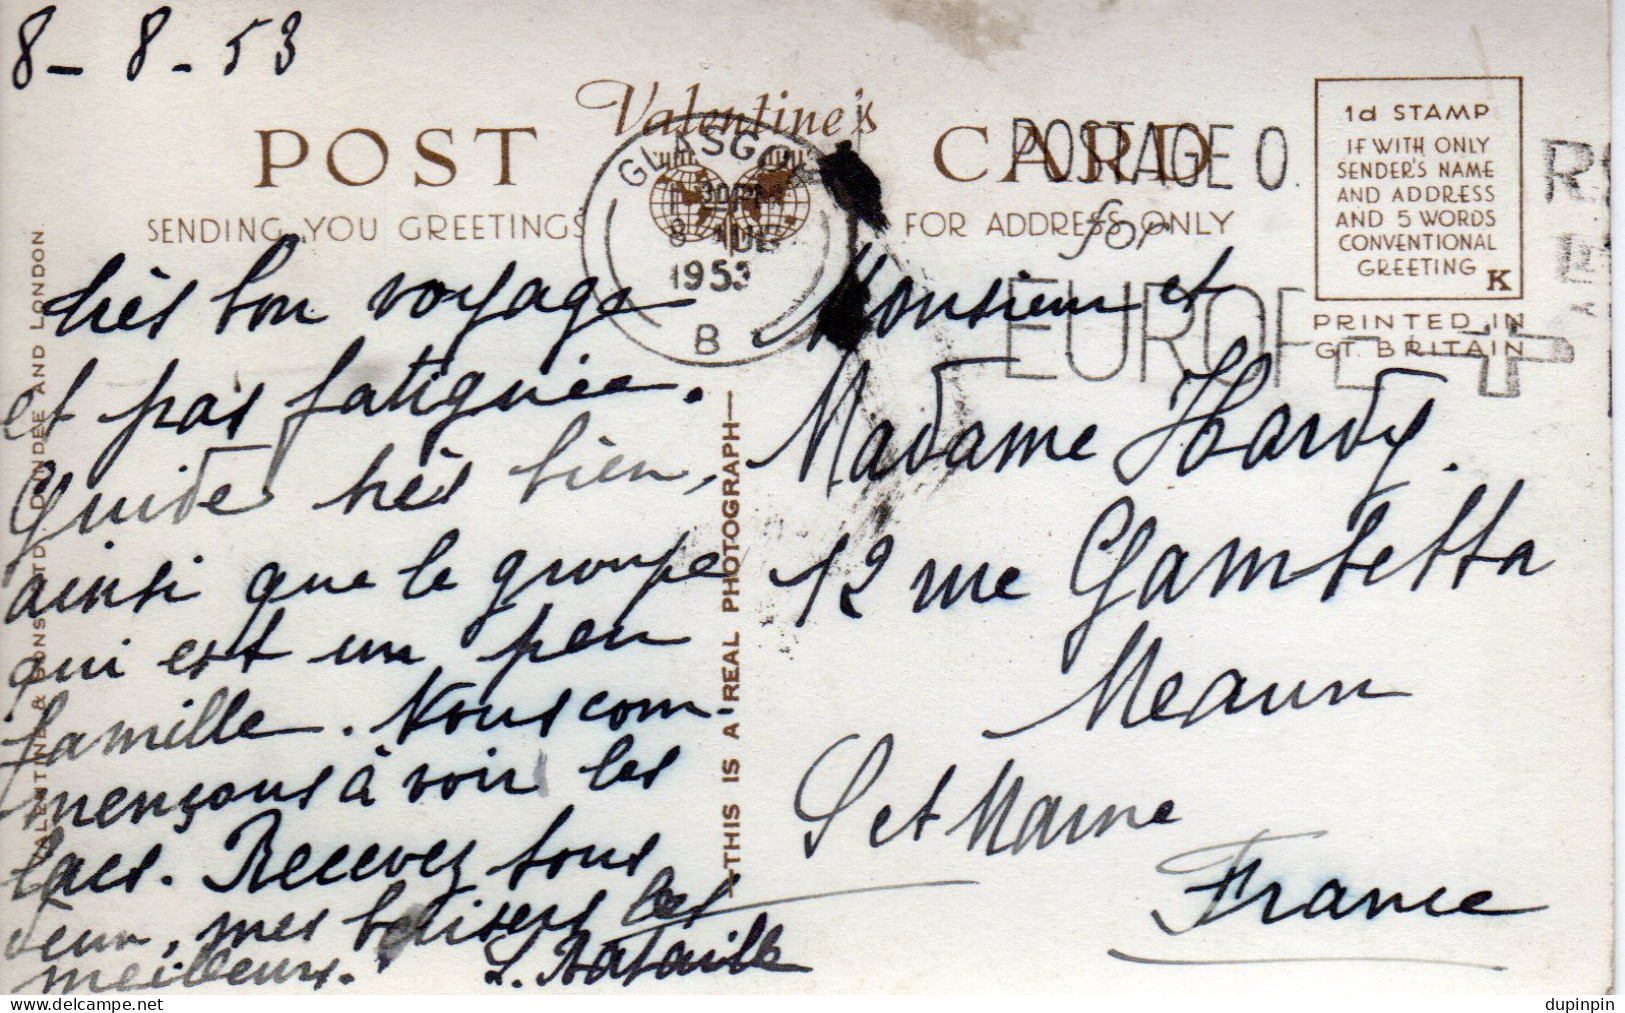 8 - 8 - 53
Valentine's
POST CARD
SENDING YOU GREETINGS
FOR ADDRESS ONLY
1d STAMP
IF WITH ONLY
SENDER'S NAME
AND ADDRESS
AND 5 WORDS
CONVENTIONAL
GREETING
K
PRINTED IN
GT. BRITAIN
GLASGOW
8 AUG
1953
B
POSTAGE
for
EUROPE
très bon voyage
et pas fatiguée.
Guide très bien,
ainsi que le groupe
qui est un peu
famille. Nous com-
mençons à voir les
lacs. Recevez tous
deux, mes baisers les
meilleurs. L. Bataille
Monsieur et
Madame Hardy.
12 rue Gambetta
Meaux
S et Marne
France
VALENTINE & SONS LTD. DUNDEE AND LONDON.
THIS IS A REAL PHOTOGRAPH
delcampe.net
dupinpin